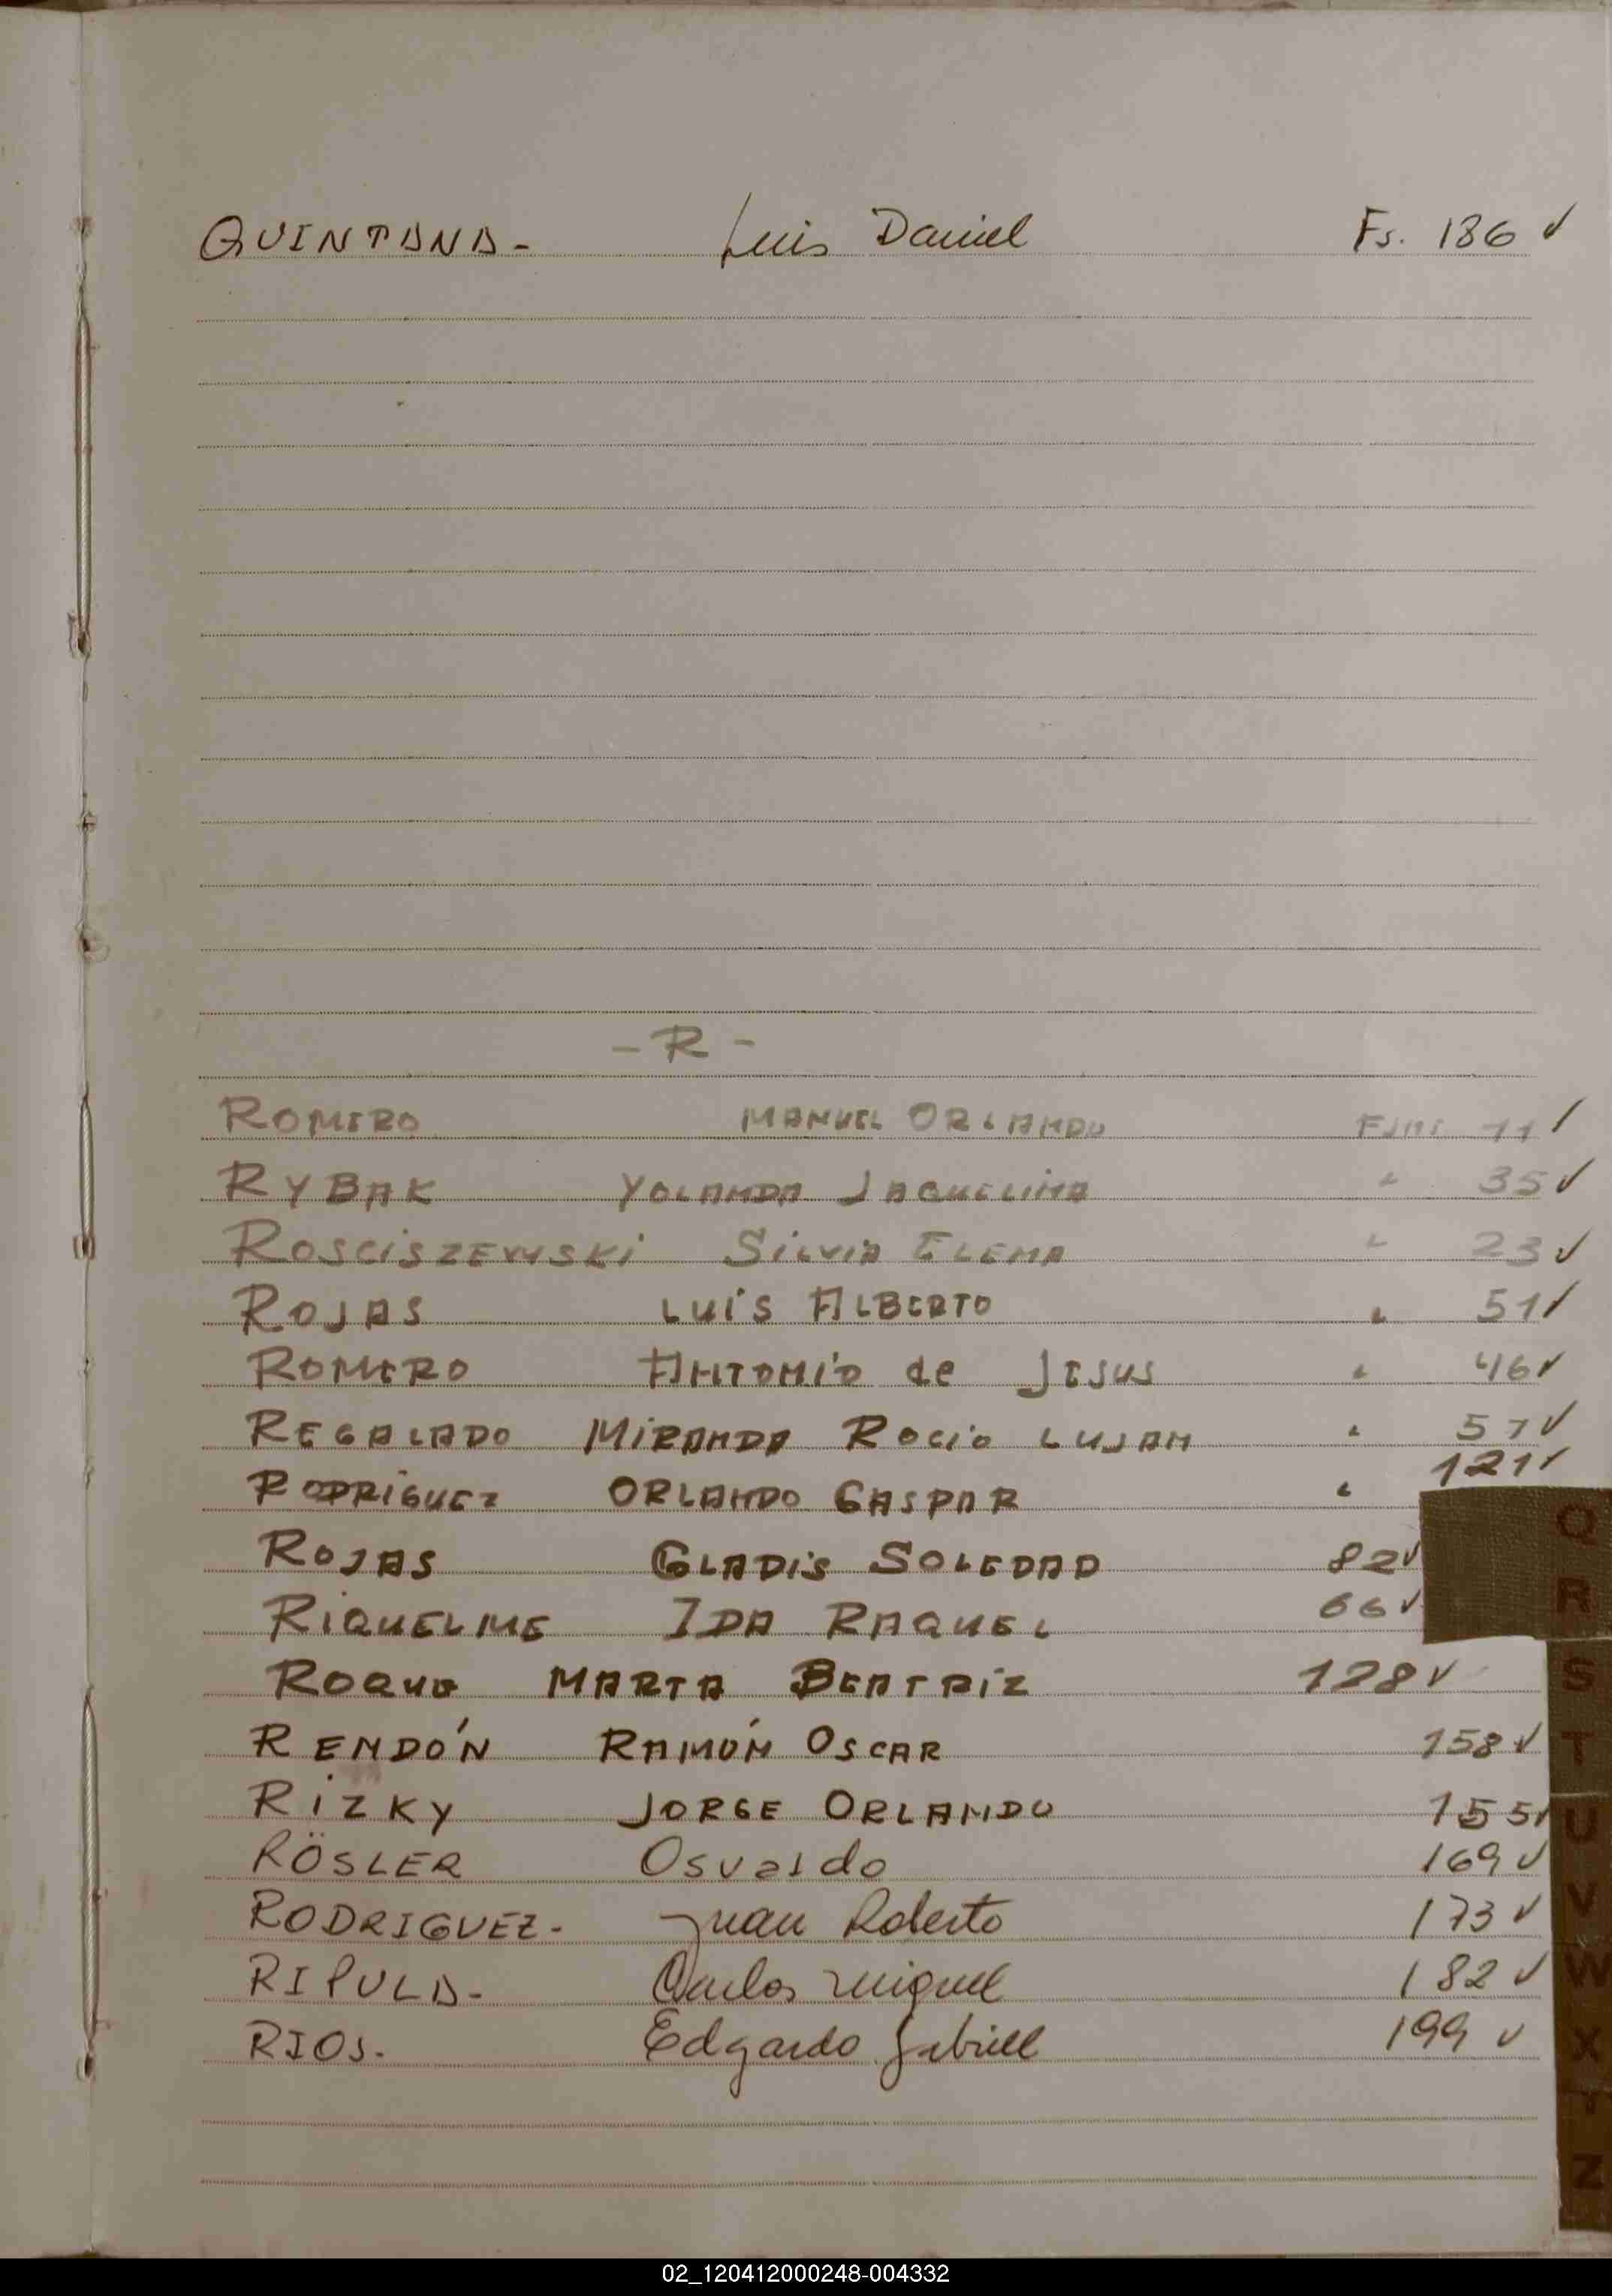 QUINTANA- Luis Daniel Fs. 186 ✓
- R -
ROMERO MANUEL ORLANDO 11 ✓
RYBAK YOLANDA JAQUELINA " 35 ✓
ROSCISZEWSKI SILVIA ELENA " 23 ✓
ROJAS LUIS ALBERTO " 51 ✓
ROMERO ANTONIO de JESUS " 46 ✓
REGALADO MIRANDA ROCIO LUJAN " 57 ✓
RODRIGUEZ ORLANDO GASPAR " 121 ✓
ROJAS GLADIS SOLEDAD 82 ✓
RIQUELME IDA RAQUEL 66 ✓
ROQUE MARTA BEATRIZ 128 ✓
RENDÓN RAMÓN OSCAR 158 ✓
RIZKY JORGE ORLANDO 155 ✓
RÖSLER Osvaldo 169 ✓
RODRIGUEZ- Juan Roberto 173 ✓
RIPULA- Carlos Miguel 182 ✓
RIOS- Edgardo Gabriel 199 ✓
Q
R
S
T
U
V
W
X
Y
Z
02_120412000248-004332